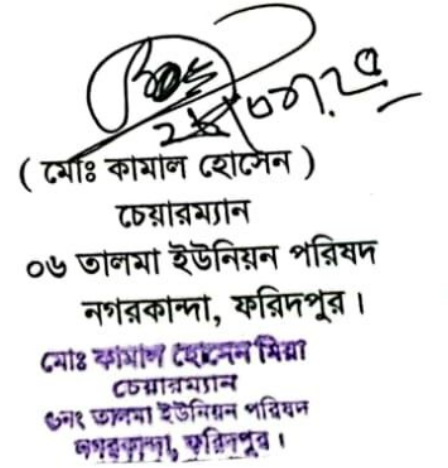 ( মোঃ কামাল হোসেন )
চেয়ারম্যান
০৬ তালমা ইউনিয়ন পরিষদ
নগরকান্দা, ফরিদপুর।
মোঃ কামাল হোসেন মিয়া
চেয়ারম্যান
৬নং তালমা ইউনিয়ন পরিষদ
নগরকান্দা, ফরিদপুর।